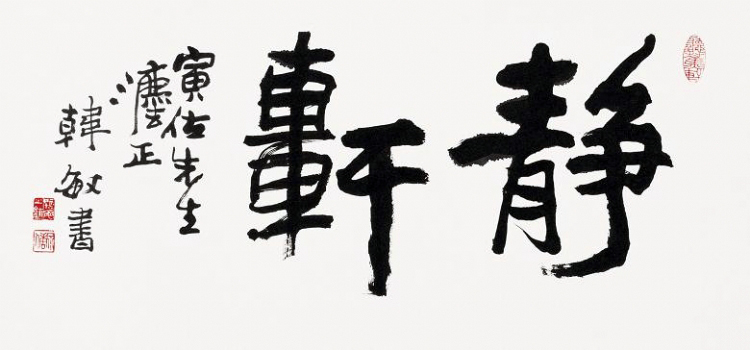 靜軒
寅佐先生
灋正
韓敏書